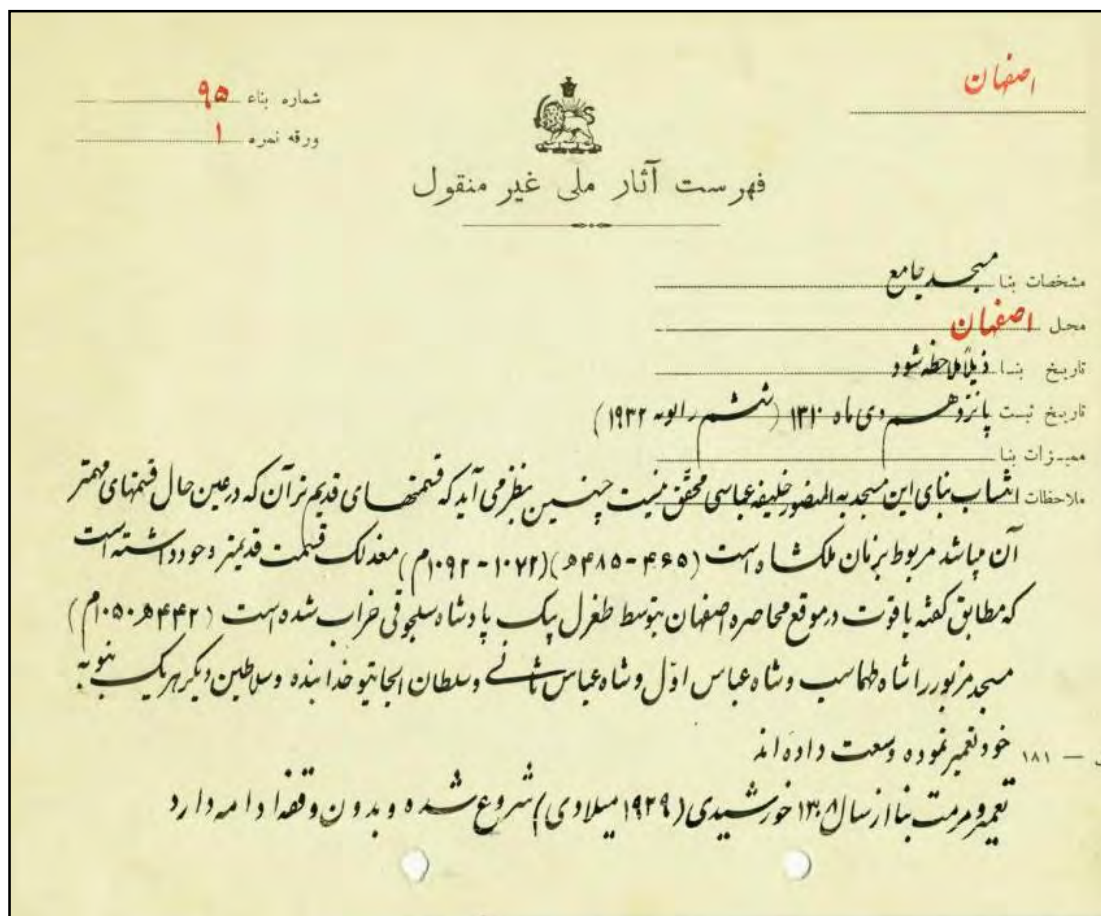 اصفهان
شماره بناء ۹۵
ورقه نمره ۱
فهرست آثار ملی غیر منقول
مشخصات بنا مسجد جامع
محل اصفهان
تاریخ بنا ذیلاً ملاحظه شود
تاریخ ثبت پانزدهم دی ماه ۱۳۱۰ (ششم ژانویه ۱۹۳۲)
ممیزات بنا
ملاحظات انتساب بنای این مسجد به المنصور خلیفه عباسی محقق نیست چنین بنظر می آید که قسمتهای قدیم تر آن که در عین حال قسمتهای مهمتر
آن میباشد مربوط بزمان ملکشاه است (۴۶۵-۴۸۵ ه) (۱۰۷۲-۱۰۹۲م) معذلک قسمت قدیمتر وجود داشته است
که مطابق گفته یاقوت در موقع محاصره اصفهان بتوسط طغرل بیک پادشاه سلجوقی خراب شده است (۴۴۲ه ۱۰۵۰م)
مسجد مزبور را شاه طهماسب و شاه عباس اول و شاه عباس ثانی و سلطان الجایتو خدابنده و سلاطین دیگر هر یک بنوبه
خود تعمیر نموده وسعت داده اند
۱۸۱ —
تعمیر و مرمت بنا از سال ۱۳۰۸ خورشیدی (۱۹۲۹ میلادی) شروع شده و بدون وقفه ادامه دارد